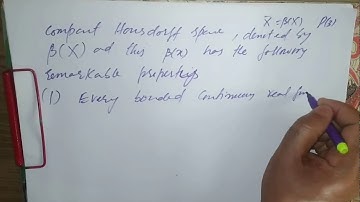 X̄ = β(X) P(x)
compact Hausdorff space, denoted by
β(X) and this β(X) has the following
remarkable properties
(1) Every bonded continuous real fun